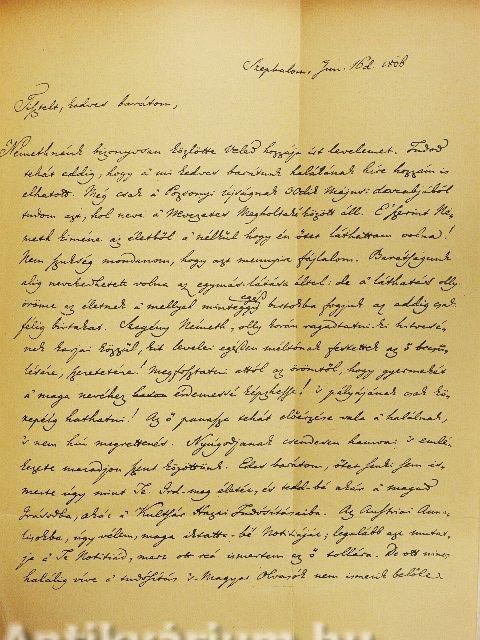 Szephalom, Jun. 16d. 1806
Tisztelt, kedves barátom,
Némethnénk bizonyosan közlötte Veled hozzája írt levelemet. Tudod
tehát eddig, hogy a mi kedves barátunk halálának híre hozzám is
elhatott. Még csak a Pozsonyi újságnak 30dik Májusi darabjából
tudom azt, hol neve a Nevezetes Megholtak között áll. E' szerint Né-
meth kiméne az életből a' nélkül hogy én őtet láthattam volna!
Nem szükség mondanom, hogy azt mennyire fájlalom. Barátságunk
alig nevekedhetett volna az egymás látása által: de a' láthatás olly
öröme az életnek a' mellyel mintegy egész birtokba fogjuk az addig csak
félig birtakat. Szegény Németh, olly korán ragadtatni ki hitvesé-
nek karjai közzül, kit levelei egészen méltónak festettek az ő becsü-
lésére, szeretetére! Megfosztatni attól az örömtől, hogy gyermekét
a maga nevéhez érdemessé képezhesse! 's pályájának csak kö-
zepéig hathatni! Az ő panasza tehát előérzése vala a' halálnak,
's nem hiú megrettenés. Nyúgodjanak csendesen hamvai 's emlé-
kezete maradjon szent közöttünk. Édes barátom, őtet senki sem is-
merte úgy mint Te. Írd-meg életét, és tedd-bé akár a magad
Írásodba, akár a Kultsár Hazai Tudósításaiba. Az Austriai Anna-
lisokba, úgy vélem, maga iktatta-bé Notitiáját; legalább azt mutat-
ja a Te Notitiád, mert ott reá ismertem az ő tollára. De ott nincs
haláláig víve a' tudósítás 's Magyar Olvasók nem ismerik belőle.
Antikvárium.hu